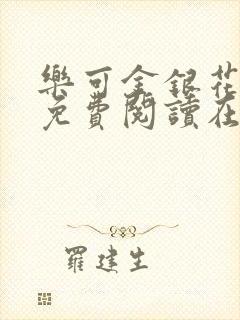 樂可金銀花
免費閱讀在
羅建生